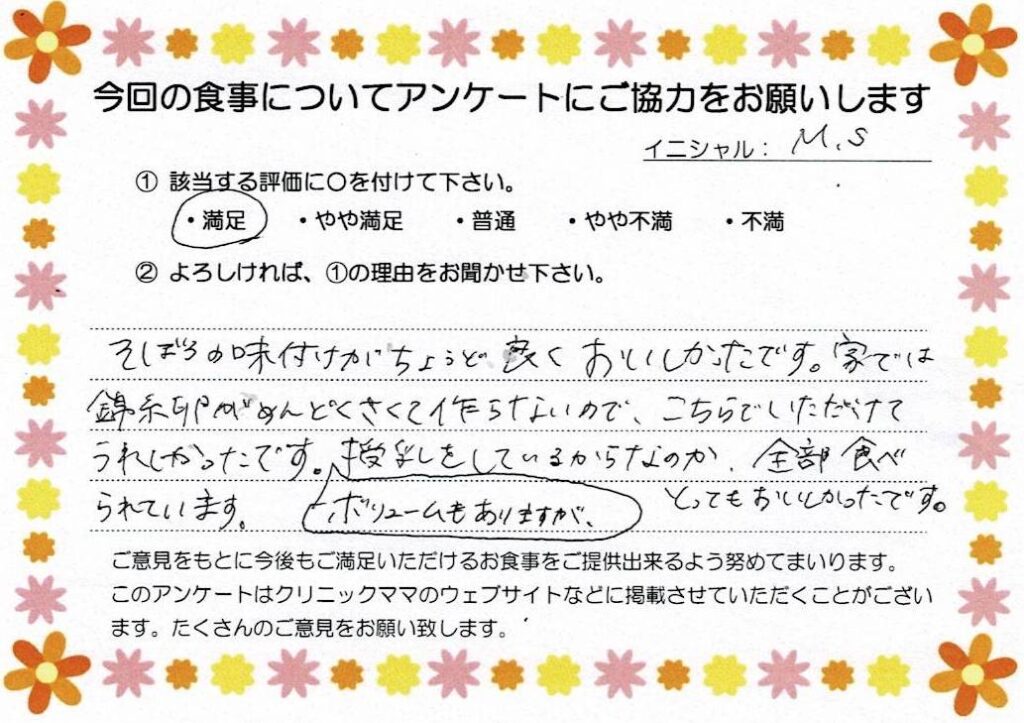 今回の食事についてアンケートにご協力をお願いします
イニシャル： M.S
① 該当する評価に〇を付けて下さい。
・満足 ・やや満足 ・普通 ・やや不満 ・不満
② よろしければ、①の理由をお聞かせ下さい。
そぼろの味付けがちょうど良く おいしかったです。家では
錦糸卵がめんどくさくて作らないので、こちらでいただけて
うれしかったです。授乳しをしているからなのか、全部食べ
られています。 ボリュームもありますが、 とってもおいしかったです。
ご意見をもとに今後もご満足いただけるお食事をご提供出来るよう努めてまいります。
このアンケートはクリニックママのウェブサイトなどに掲載させていただくことがござい
ます。たくさんのご意見をお願い致します。